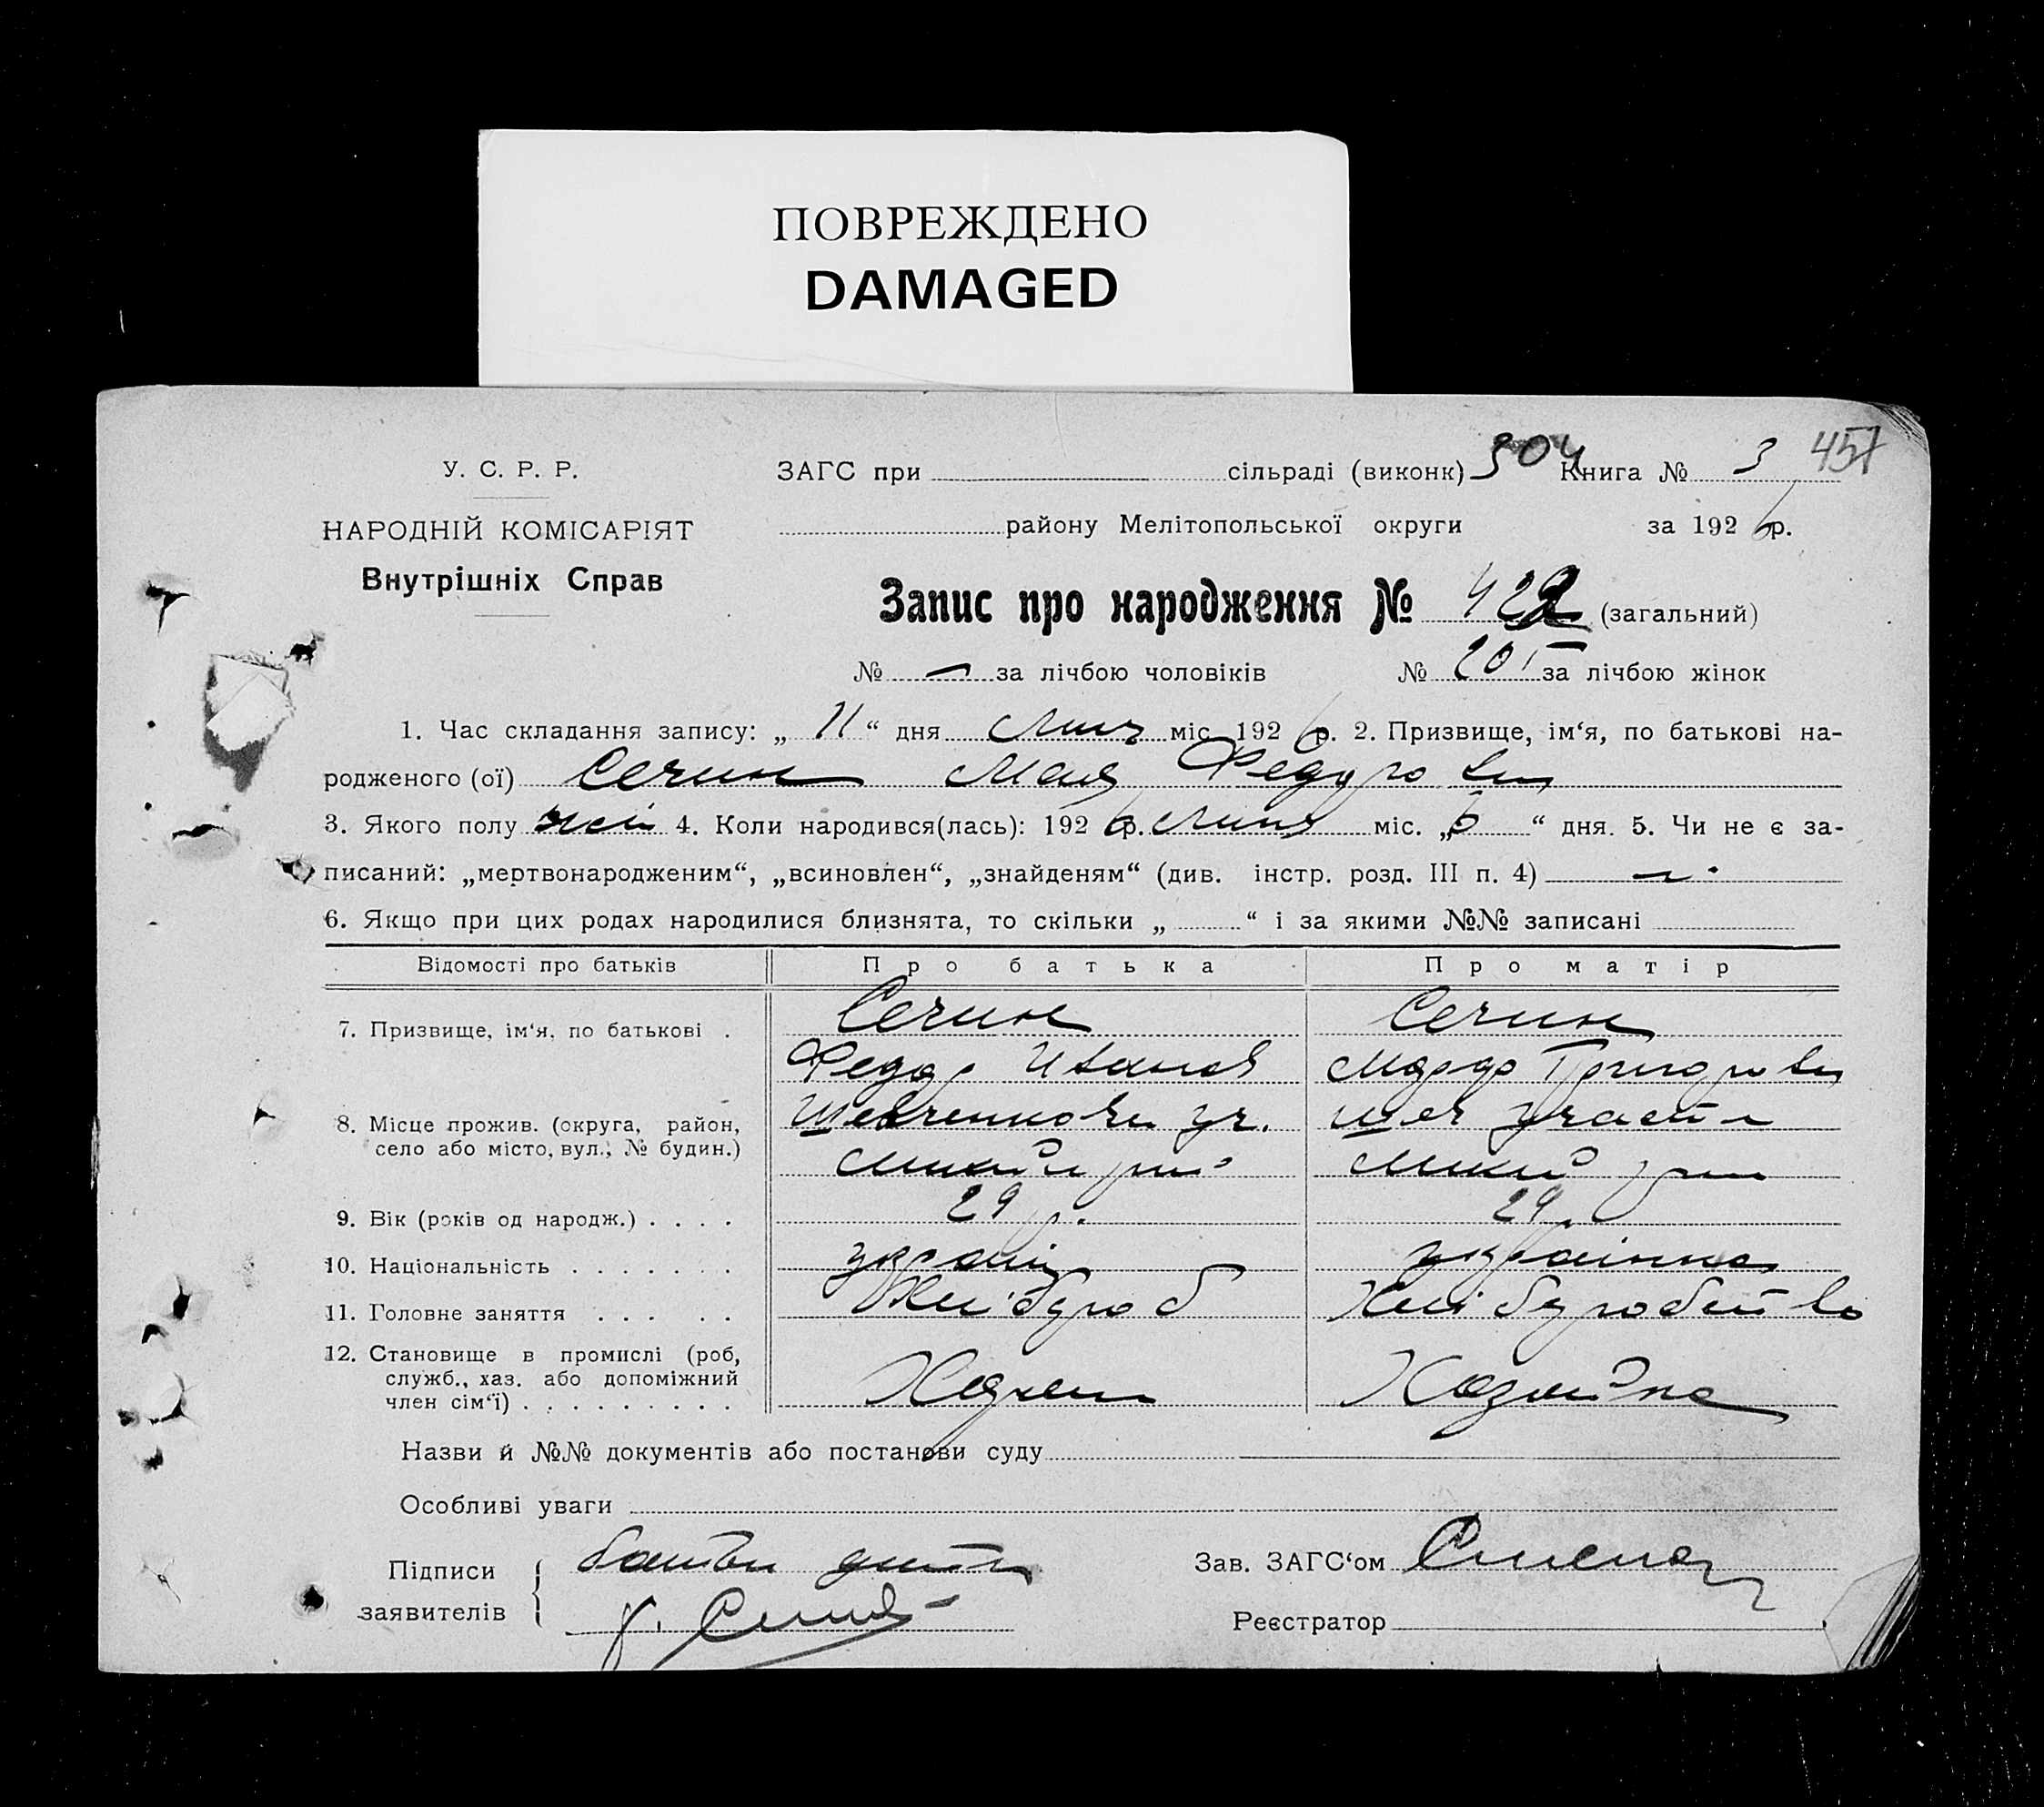 ПОВРЕЖДЕНО
DAMAGED
304 457
У. С. Р. Р. ЗАГС при сільраді (виконк) Книга № 3
НАРОДНІЙ КОМІСАРІЯТ району Мелітопольської округи за 1926 р.
Внутрішніх Справ
Запис про народження № 422 (загальний)
№ — за лічбою чоловіків № 201 за лічбою жінок
1. Час складання запису: „ 11 “ дня міс. 1926 р. 2. Призвище, ім‘я, по батькові на-
родженого (ої) Сечин Федоровна
3. Якого полу жін 4. Коли народився(лась): 1926 р. липня міс. „6“ дня. 5. Чи не є за-
писаний: „мертвонародженим“, „всиновлен“, „знайденям“ (див. інстр. розд. III п. 4)
6. Якщо при цих родах народилися близнята, то скільки „ “ і за якими №№ записані
Відомості про батьків Про батька Про матір
7. Призвище, ім‘я, по батькові . Сечин Сечин
Федор Иванов Григоровна
8. Місце прожив. (округа, район, уч.
село або місто, вул., № будин.)
9. Вік (років од народж.) . . . . 29 р. 29
10. Національність . . . . . . . україн українка
11. Головне заняття . . . . . Хлібороб Хліборобство
12. Становище в промислі (роб,
служб., хаз. або допоміжний Хазяїн Хазяйка
член сім‘ї) . . . . . . . . .
Назви й №№ документів або постанови суду
Особливі уваги
Підписи Зав. ЗАГС‘ом
заявителів
Реєстратор